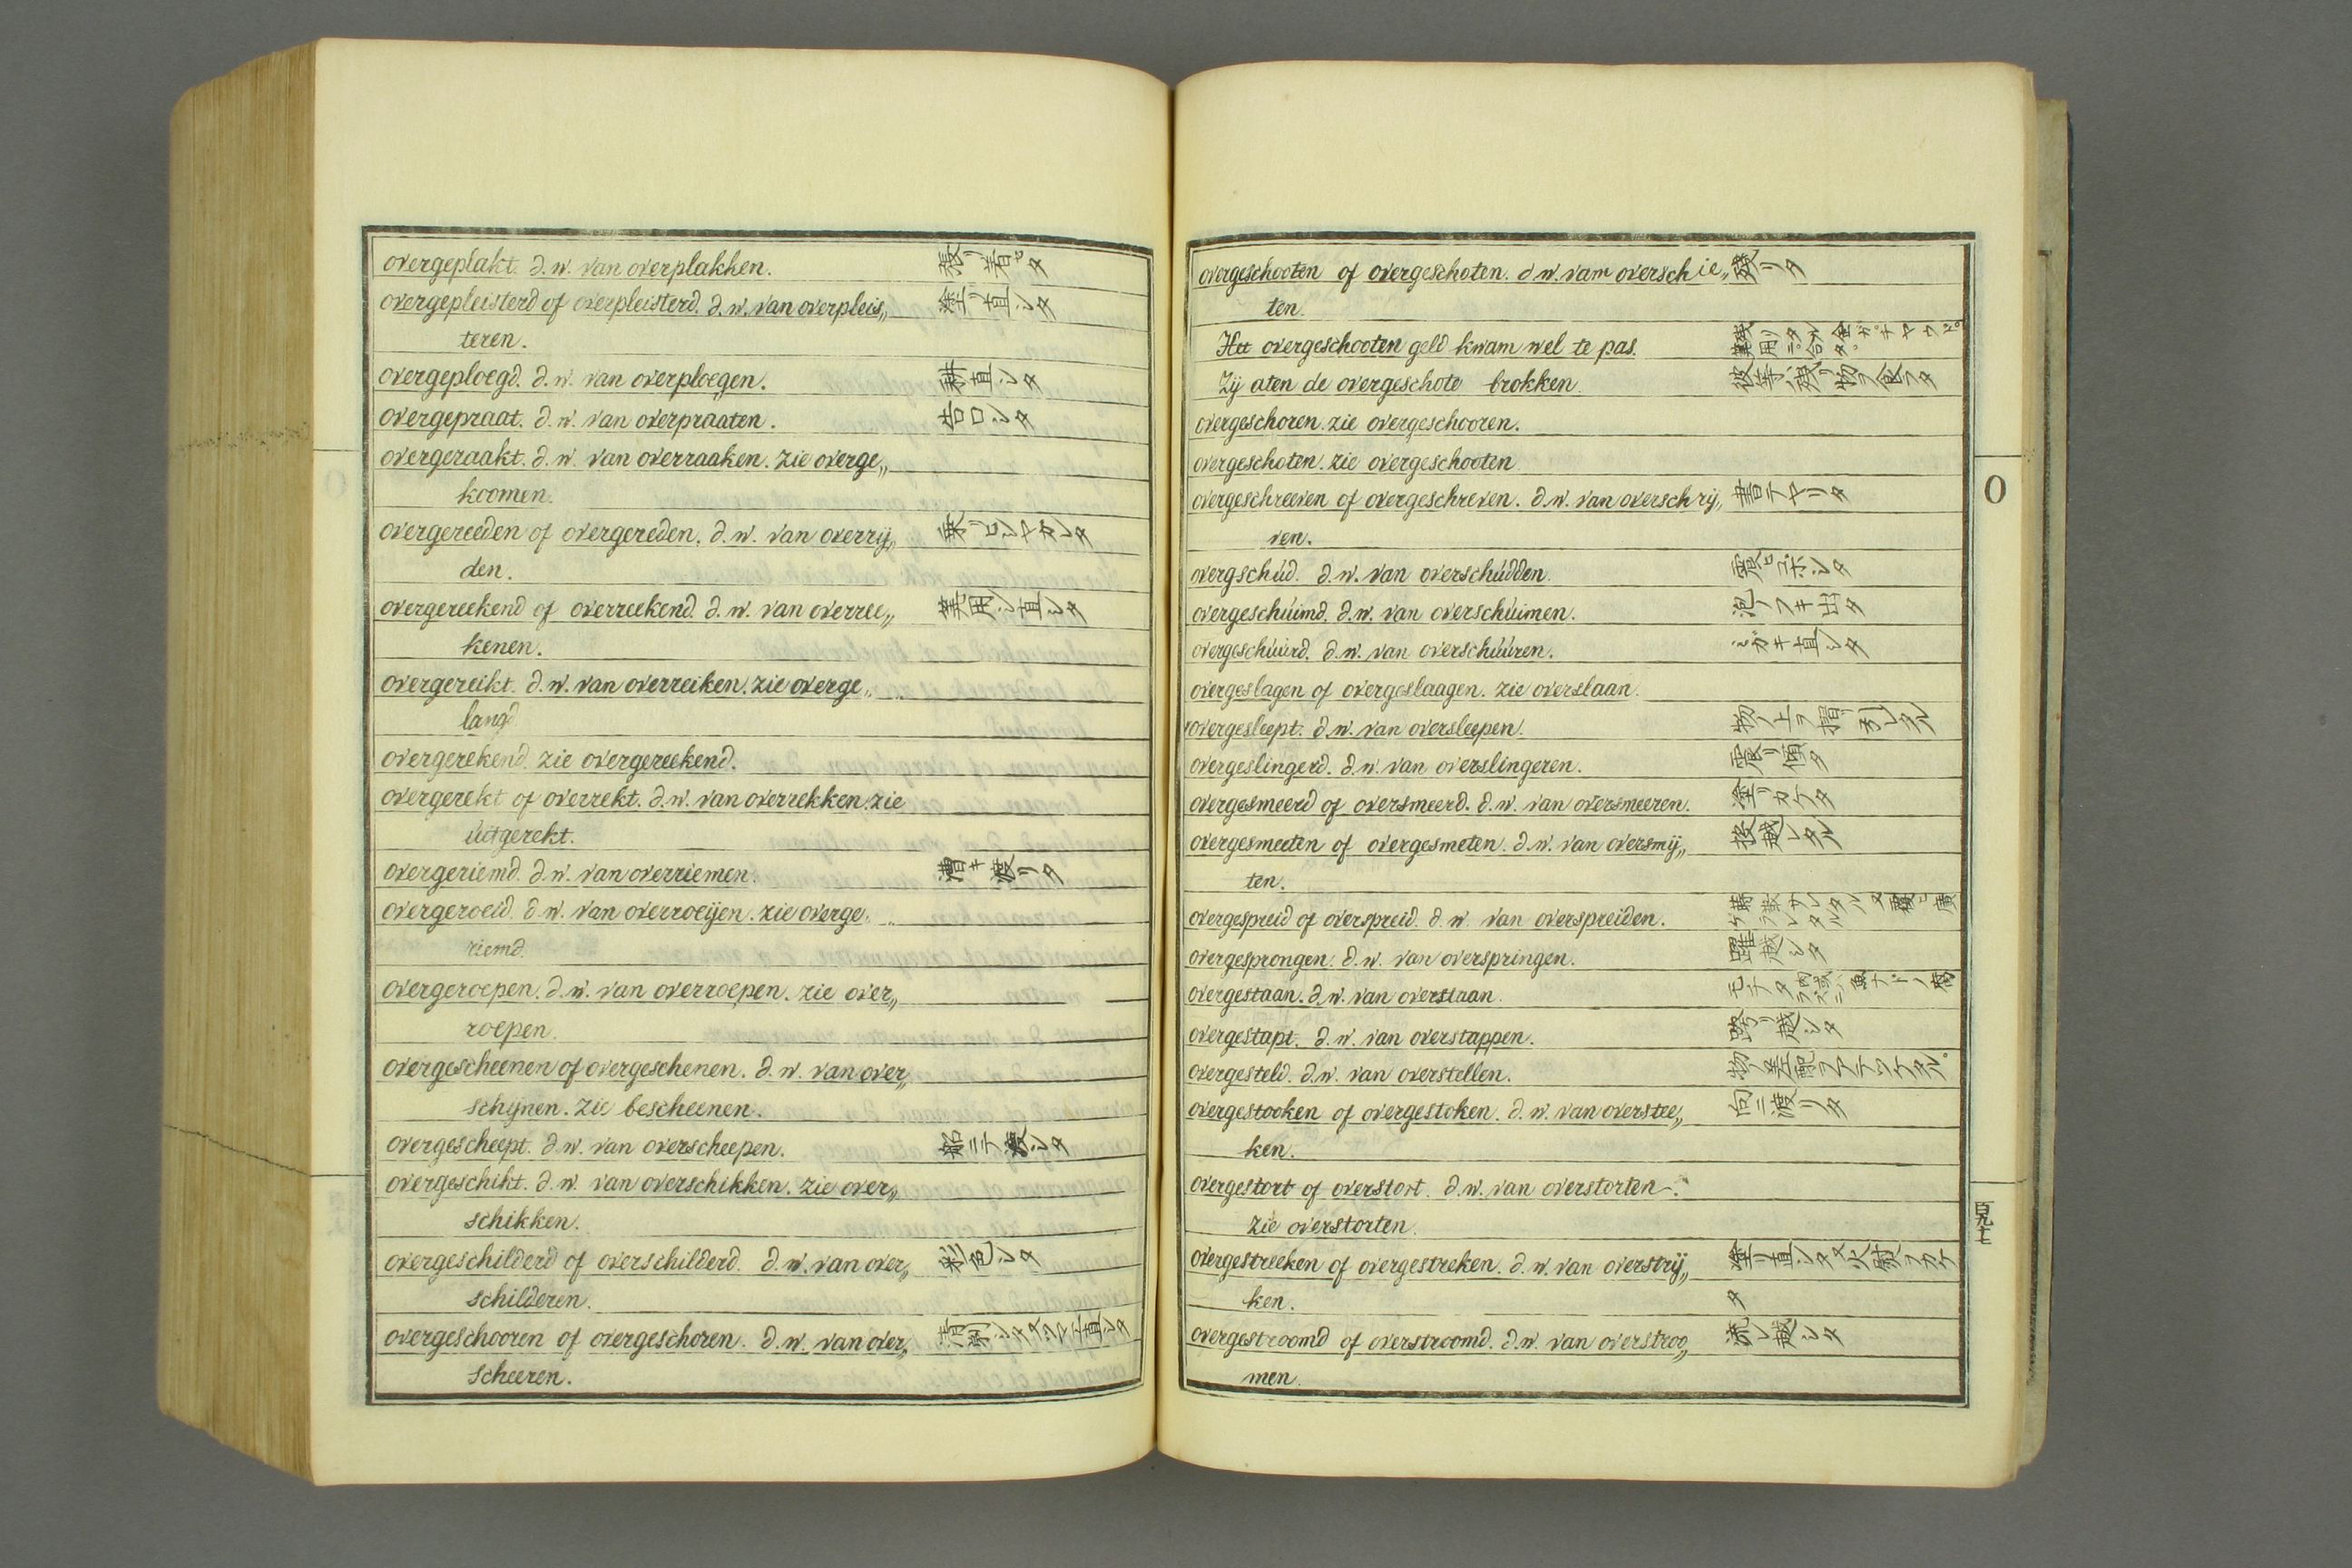 overgeplakt. d.w. van overplakken. 張リ着ケタ
overgepleisterd of overpleisterd. d.w. van overpleis„ 塗リ直シタ
teren.
overgeploegd. d.w. van overploegen. 耕直シタ
overgepraat. d.w. van overpraaten. 告口シタ
overgeraakt. d.w. van overraaken. zie overge„
koomen.
overgereeden of overgereden. d.w. van overrij„ 乗リ
den.
overgereekend of overreekend. d.w. van overree„ 筭用シ直シタ
kenen.
overgereikt. d.w. van overreiken. zie overge„
langd
overgerekend. zie overgereekend.
overgerekt of overrekt. d.w. van overrekken. zie
uitgerekt.
overgeriemd. d.w. van overriemen. 漕キ渡リタ
overgeroeid. d.w. van overroeijen. zie overge„
riemd.
overgeroepen. d.w. van overroepen. zie over„
roepen.
overgescheenen of overgeschenen. d.w. van over„
schijnen. zie bescheenen.
overgescheept. d.w. van overscheepen. 船ニテ渡シタ
overgeschikt. d.w. van overschikken. zie over„
schikken.
overgeschilderd of overschilderd. d.w. van over„ 彩色シタ
schilderen.
overgeschooren of overgeschoren. d.w. van over„
scheeren.
overgeschooten of overgeschoten. d w. vam overschie„ 残リタ
ten.
Het overgeschooten geld kwam wel te pas.
Zij aten de overgeschote brokken. 彼等残リ物ヲ食フタ
overgeschoren. zie overgeschooren.
overgeschoten. zie overgeschooten
overgeschreeven of overgeschreven. d.w. van overschrij„ 書テヤリタ
ven.
overgschúd. d.w. van overschúdden.
overgeschúimd. d.w. van overschúimen. 泡ノフキ出タ
overgeschúúrd. d.w. van overschúúren. ミガキ直シタ
overgeslagen of overgeslaagen. zie overslaan.
overgesleept. d.w. van oversleepen. 物ノ上ヲ
overgeslingerd. d.w. van overslingeren.
overgesmeerd of oversmeerd. d.w. van oversmeeren. 塗リカケタ
overgesmeeten of overgesmeten. d.w. van oversmij„ 投越レタル
ten.
overgespreid of overspreid. d.w. van overspreiden.
overgesprongen. d.w. van overspringen. 躍越シタ
overgestaan. d.w. van overstaan.
overgestapt. d.w. van overstappen. 跨リ越シタ
overgesteld. d.w. van overstellen.
overgestooken of overgestoken. d.w. van overstee„ 向ニ渡リタ
ken.
overgestort of overstort. d.w. van overstorten.
zie overstorten.
overgestreeken of overgestreken. d.w. van overstrij„ 塗リ直シタ又火熨ヲカケ
ken. タ
overgestroomd of overstroomd. d.w. van overstroo„ 流レ越シタ
men.
O
百九十七